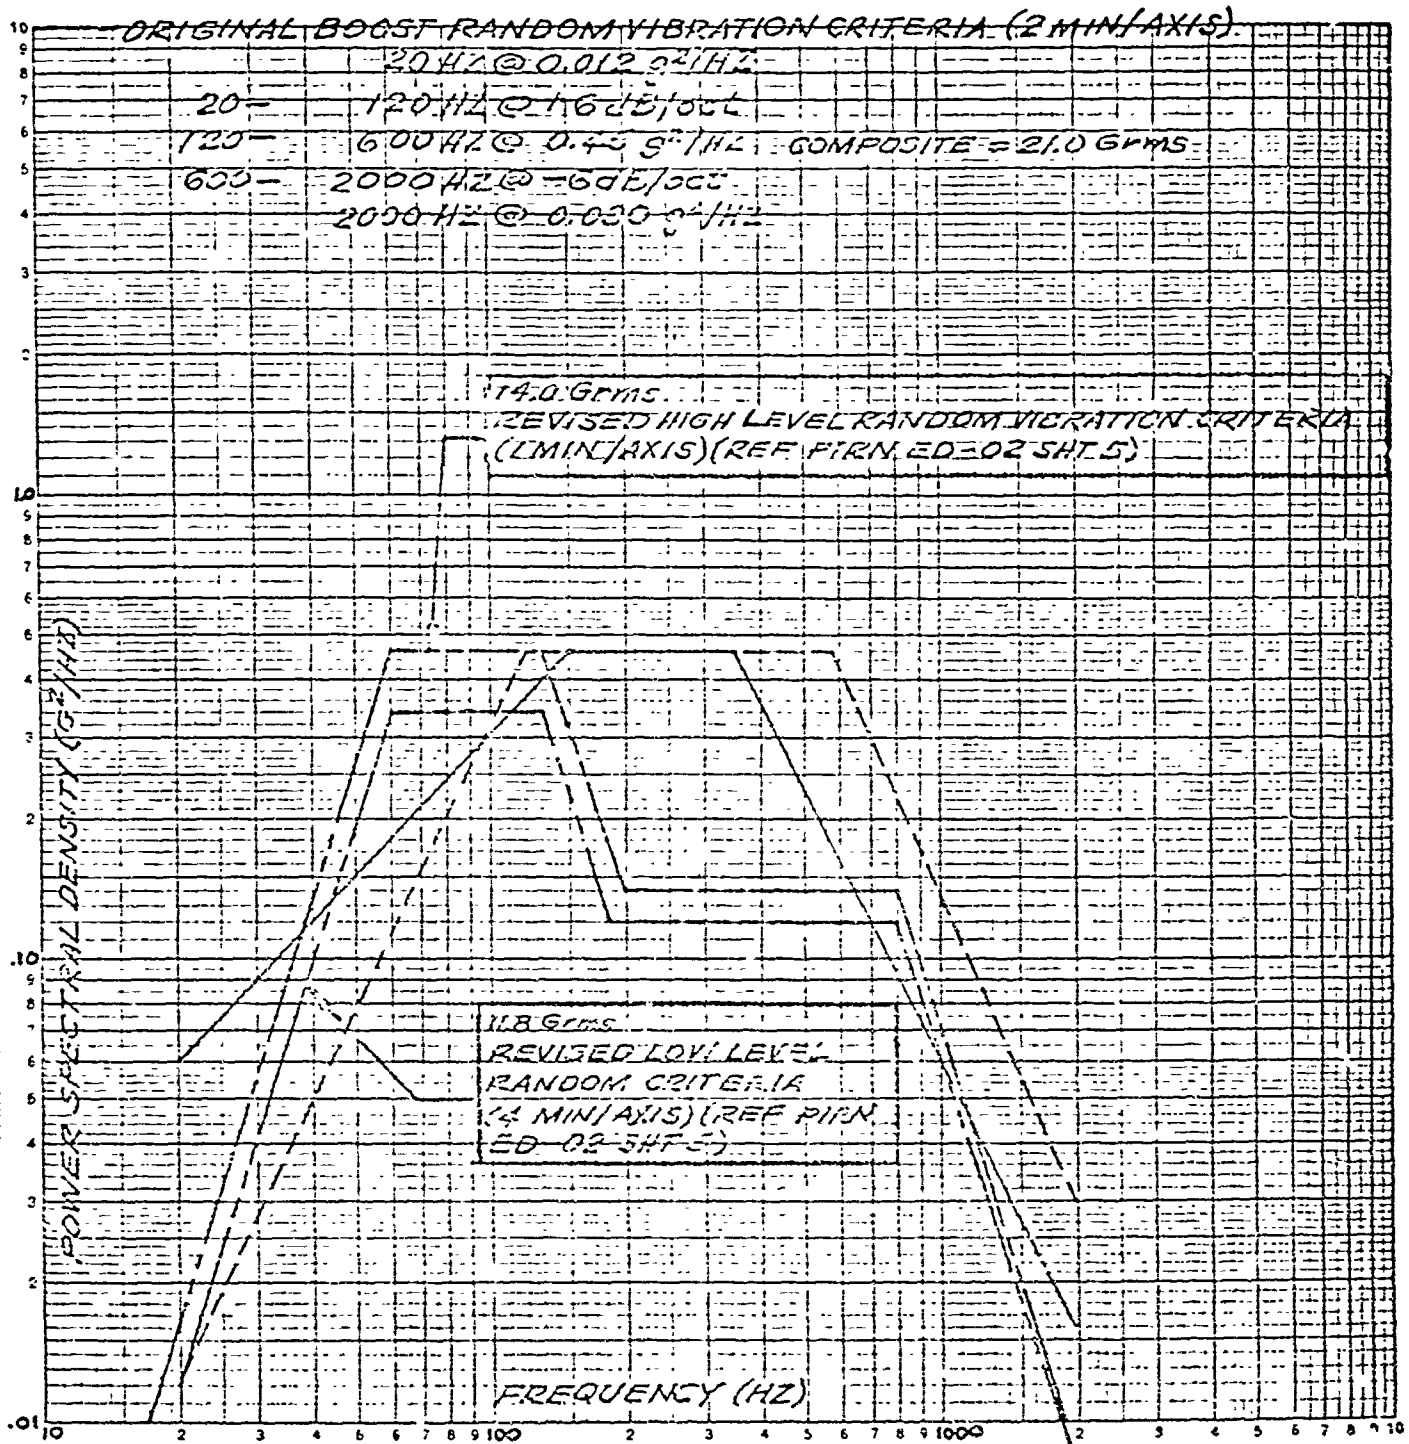 ORIGINAL BOOST RANDOM VIBRATION CRITERIA (2 MIN/AXIS)
20 HZ @ 0.012 g²/HZ
20- 120 HZ @ +6dB/oct
120- 600 HZ @ 0.45 g²/HZ COMPOSITE = 21.0 Grms
600- 2000 HZ @ -6dB/oct
2000 HZ @ 0.030 g²/HZ
14.0 Grms
REVISED HIGH LEVEL RANDOM VIBRATION CRITERIA
(1 MIN/AXIS) (REF PIRN ED-02 SHT 5)
11.8 Grms
REVISED LOW LEVEL
RANDOM CRITERIA
(4 MIN/AXIS) (REF PIRN
ED-02 SHT 5)
POWER SPECTRAL DENSITY (G²/HZ)
10
9
8
7
6
5
4
3
2
1.0
9
8
7
6
5
4
3
2
.10
9
8
7
6
5
4
3
2
.01
FREQUENCY (HZ)
10 2 3 4 5 6 7 8 9 100 2 3 4 5 6 7 8 9 1000 2 3 4 5 6 7 8 9 10